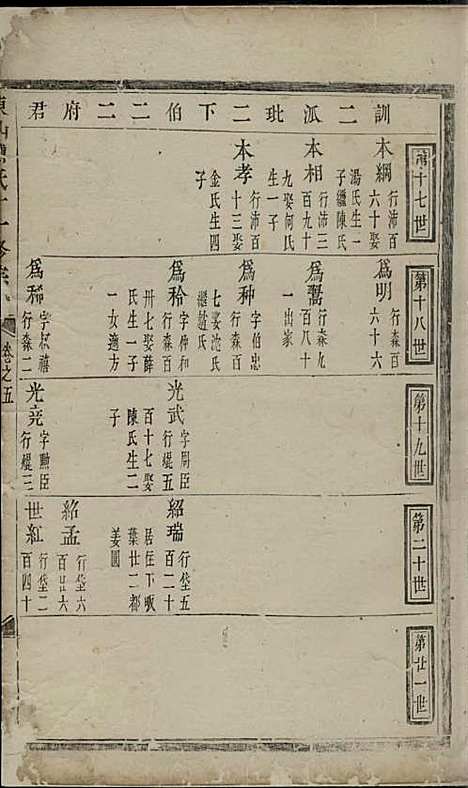 訓二派玭二下伯二二府君
第十七世
本綱
行沛百
六十娶
湯氏生一
子繼陳氏
本相
行沛三
百九十
九娶何氏
生一子
本孝
行沛百
十三娶
金氏生四
子
第十八世
為明
行森百
六十六
為鸞
行森九
百八十
一出家
為种
字伯忠
行森百
七娶沈氏
繼趙氏
為秴
字仲和
行森百
卅七娶薛
氏生一子
一女適方
為稀
字叔禧
行森二
第十九世
光武
字周臣
行焜五
百十七娶
陳氏生二
子
光堯
字勲臣
行焜三
第二十世
紹瑞
行垈五
百二十
居住下
葉廿二都
姜圓
紹孟
行垈六
百廿六
世紅
行垈二
百四十
第廿一世
卷之五